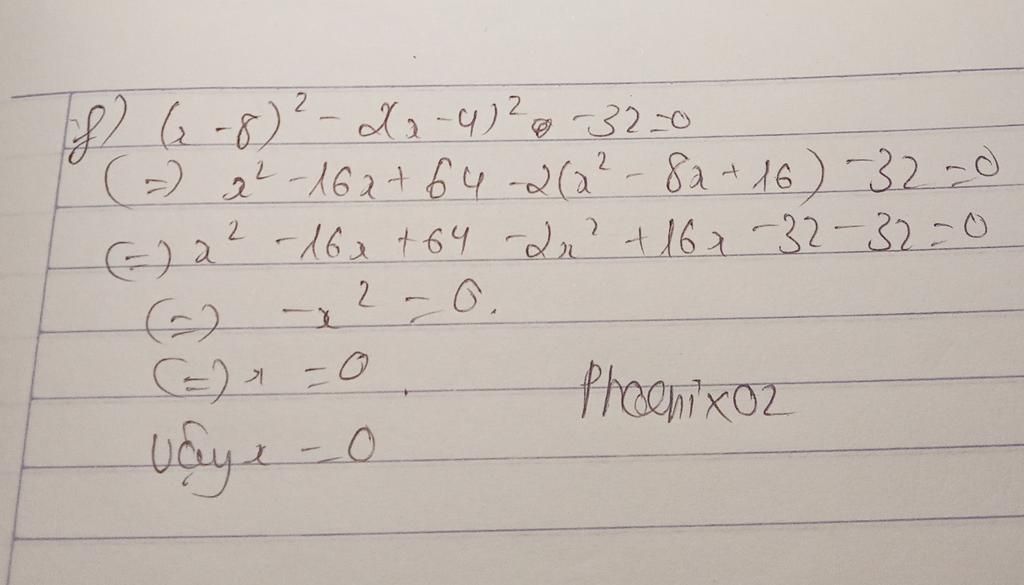 f) (x - 8)² - 2(x - 4)² - 32 = 0
(=) x² - 16x + 64 - 2(x² - 8x + 16) - 32 = 0
(=) x² - 16x + 64 - 2x² + 16x - 32 - 32 = 0
(=) -x² = 0.
(=) x = 0.
Vậy x = 0
Phoenix02